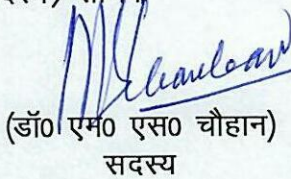 (डॉ0 एम0 एस0 चौहान)
सदस्य